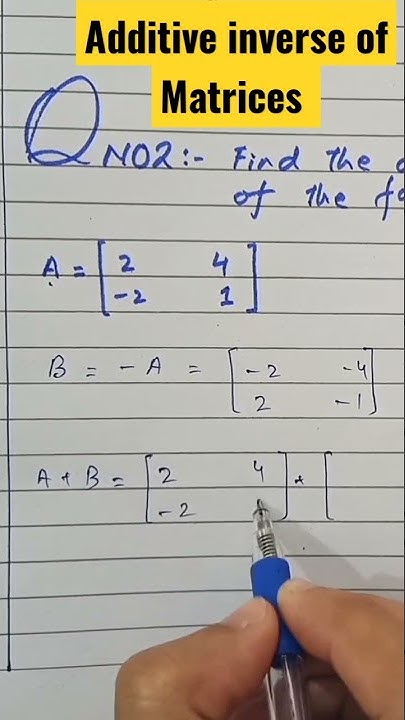 Additive inverse of
Matrices
Q NO2:- Find the
of the
A = [ 2 4
-2 1 ]
B = - A = [ -2 -4
2 -1 ]
A + B = [ 2 4
-2 ] + [